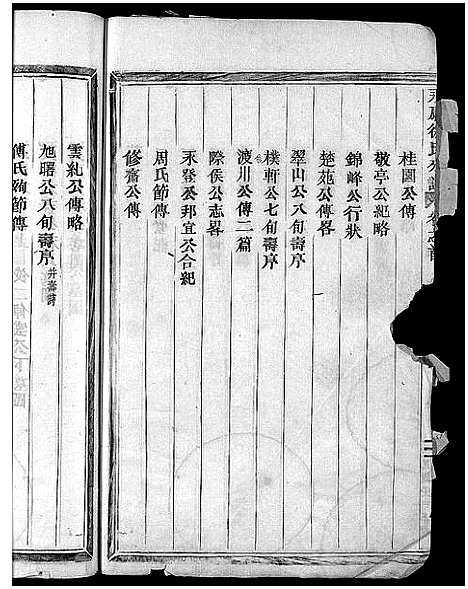 桂園公傳
敬亭公紀略
錦峰公行狀
楚苑公傳畧
翠山公八旬壽序
樸軒公七旬壽序
渡川公傳二篇
際侯公志畧
永發公邦宜公合紀
周氏節傳
修齋公傳
雲紀公傳略
旭曙公八旬壽序 并壽詩
傅氏殉節傳